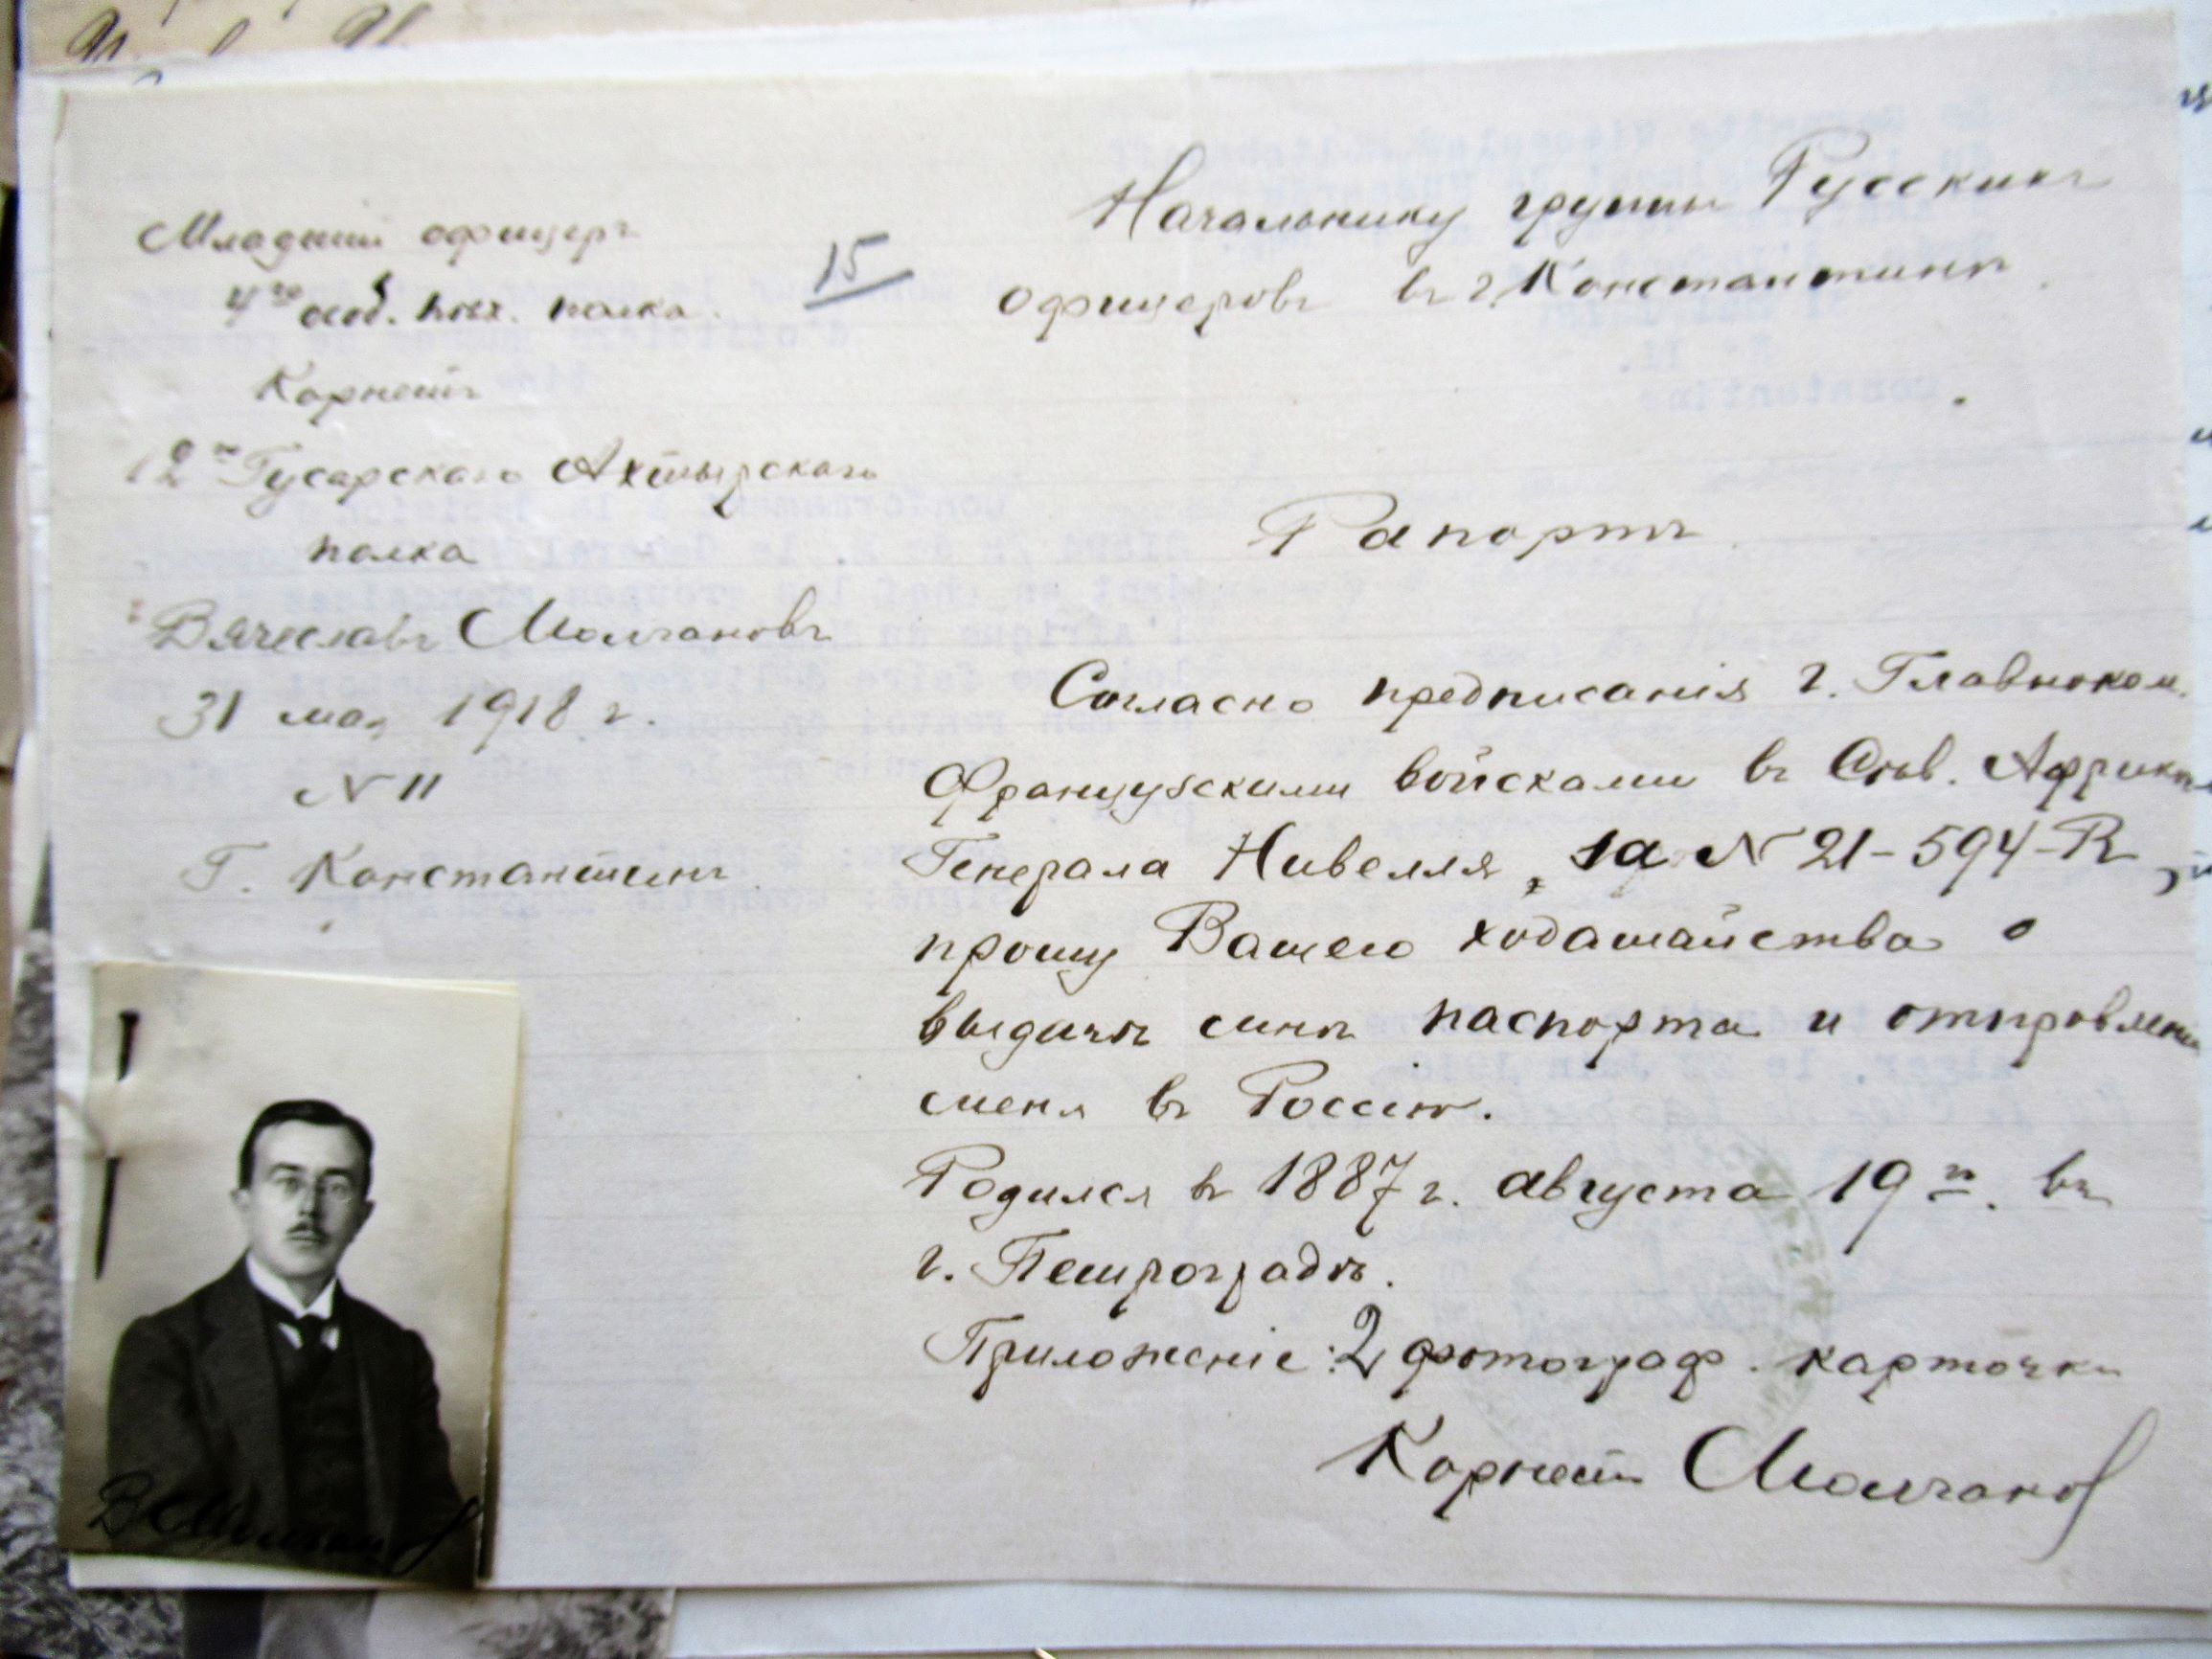 Младшій офицеръ
4го особ. пѣх. полка.
Корнетъ
12го Гусарскаго Ахтырскаго
полка
Вячеславъ Молчановъ
31 мая 1918 г.
N 11
Г. Константинъ
15
Начальнику группы Русскихъ
офицеровъ въ г. Константинѣ.
Рапортъ
Согласно предписанія г. Главноком.
Французскими войсками въ Сѣв. Африкѣ
Генерала Нивелля, за N 21-594-R,
прошу Вашего ходатайства о
выдачѣ мнѣ паспорта и отправлени
меня въ Россію.
Родился въ 1887 г. августа 19го. въ
г. Петроградѣ.
Приложеніе: 2 фотограф. карточки
Корнетъ Молчанов
В Молчанов